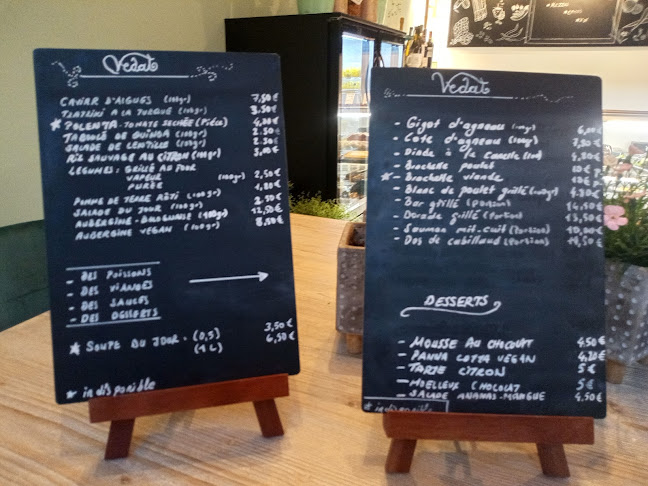 Vedat
CAVIAR D'AIGUES (100gr) 7,50€
TZATZIKI A LA TURQUE (100gr) 3,50€
* POLENTA-TOMATE SECHÉE (Pièce) 4,00€
TABOULÉ DE QUINOA (100gr) 2.50€
SALADE DE LENTILLE (100gr) 2.50€
RIZ SAUVAGE AU CITRON (100gr)
LEGUMES: GRILLÉ AU FOUR 2,50€
VAPEUR (100gr)
PURÉE 1,80€
POMME DE TERRE RÔTI (100gr) 2.50€
SALADE DU JOUR (100gr) 12,50€
AUBERGINE-BOLOGNAISE (100gr) 8,50€
AUBERGINE VEGAN (100gr)
- DES POISSONS
- DES VIANDES
- DES SAUCES
- DES DESSERTS
* SOUPE DU JOUR: (0,5) 3,50€
(1L) 6,50€
* indisponible
Vedat
- Gigot d'agneau (100gr)
- Cote d'agneau (100gr)
- Dinde à la Canelle 4.80€
- Brochette poulet 10€
* - Brochette viande 10€
- Blanc de poulet grillé (100gr) 4.80€
- Bar grillé (Portion) 14,50€
- Dorade grillé (Portion) 13,50€
- Saumon mit-cuit (Portion)
- Dos de cabillaud (Portion) 14,50€
DESSERTS
- MOUSSE AU CHOCOLAT 4,50€
- PANNA COTTA VEGAN
- TARTE CITRON 5€
- MOELLEUX CHOCOLAT 5€
- SALADE ANANAS-MANGUE 4,50€
* indisponible